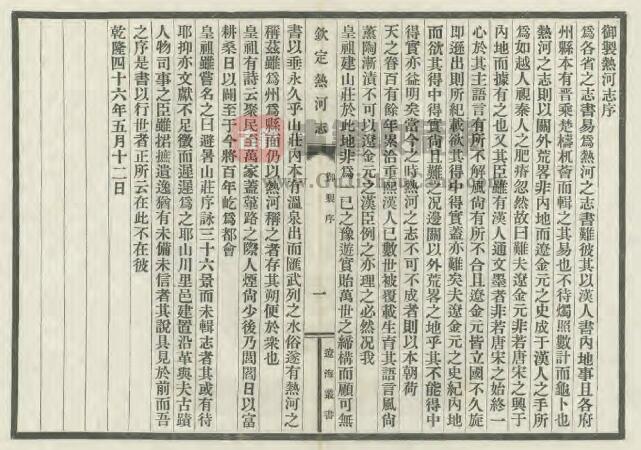 御製熱河志序
為各省之志書易為熱河之志書難彼其以漢人書內地事且各府
州縣本有晉乘楚檮杌薈而輯之其易也不待燭照數計而龜卜也
熱河之志則以關外荒畧非內地而遼金元之史成于漢人之手所
為如越人視秦人之肥瘠忽然故曰難夫遼金元非若唐宋之興于
內地而據有之也又其臣雖有漢人通文墨者非若唐宋之始終一
心於其主語言有所不解風尚有所不合且遼金元皆立國不久旋
即遜出則所紀載欲其得中得實蓋亦難矣夫遼金元之史紀內地
而欲其得中得實尚且難之況邊關以外荒畧之地乎其不能得中
得實亦益明矣當今之時熱河之志不可不成者則以本朝荷
天之眷百有餘年累洽重熙漢人已數世被覆載生育其語言風尚
薰陶漸漬不可以遼金元之漢臣例之亦理之必然況我
皇祖建山莊於此地非為一已之豫遊實貽萬世之締構而顧可無
欽定熱河志
御製序
一
遼海叢書
書以垂永久乎山莊內本有溫泉出而匯武列之水俗遂有熱河之
稱茲雖為州為縣而仍以熱河稱之者存其朔便於衆也
皇祖有詩云聚民至萬家蓋篳路之際人煙尚少後乃閭閻日以富
耕桑日以闢至于今將百年屹為都會
皇祖雖嘗名之曰避暑山莊序詠三十六景而未輯志者其或有待
耶抑亦文獻不足徵而遲遲為之耶山川里邑建置沿革與夫古蹟
人物司事之臣雖捃摭遺逸猶有未備未信者其說具見於前而吾
之序是書以行世者正所云在此不在彼
乾隆四十六年五月十二日